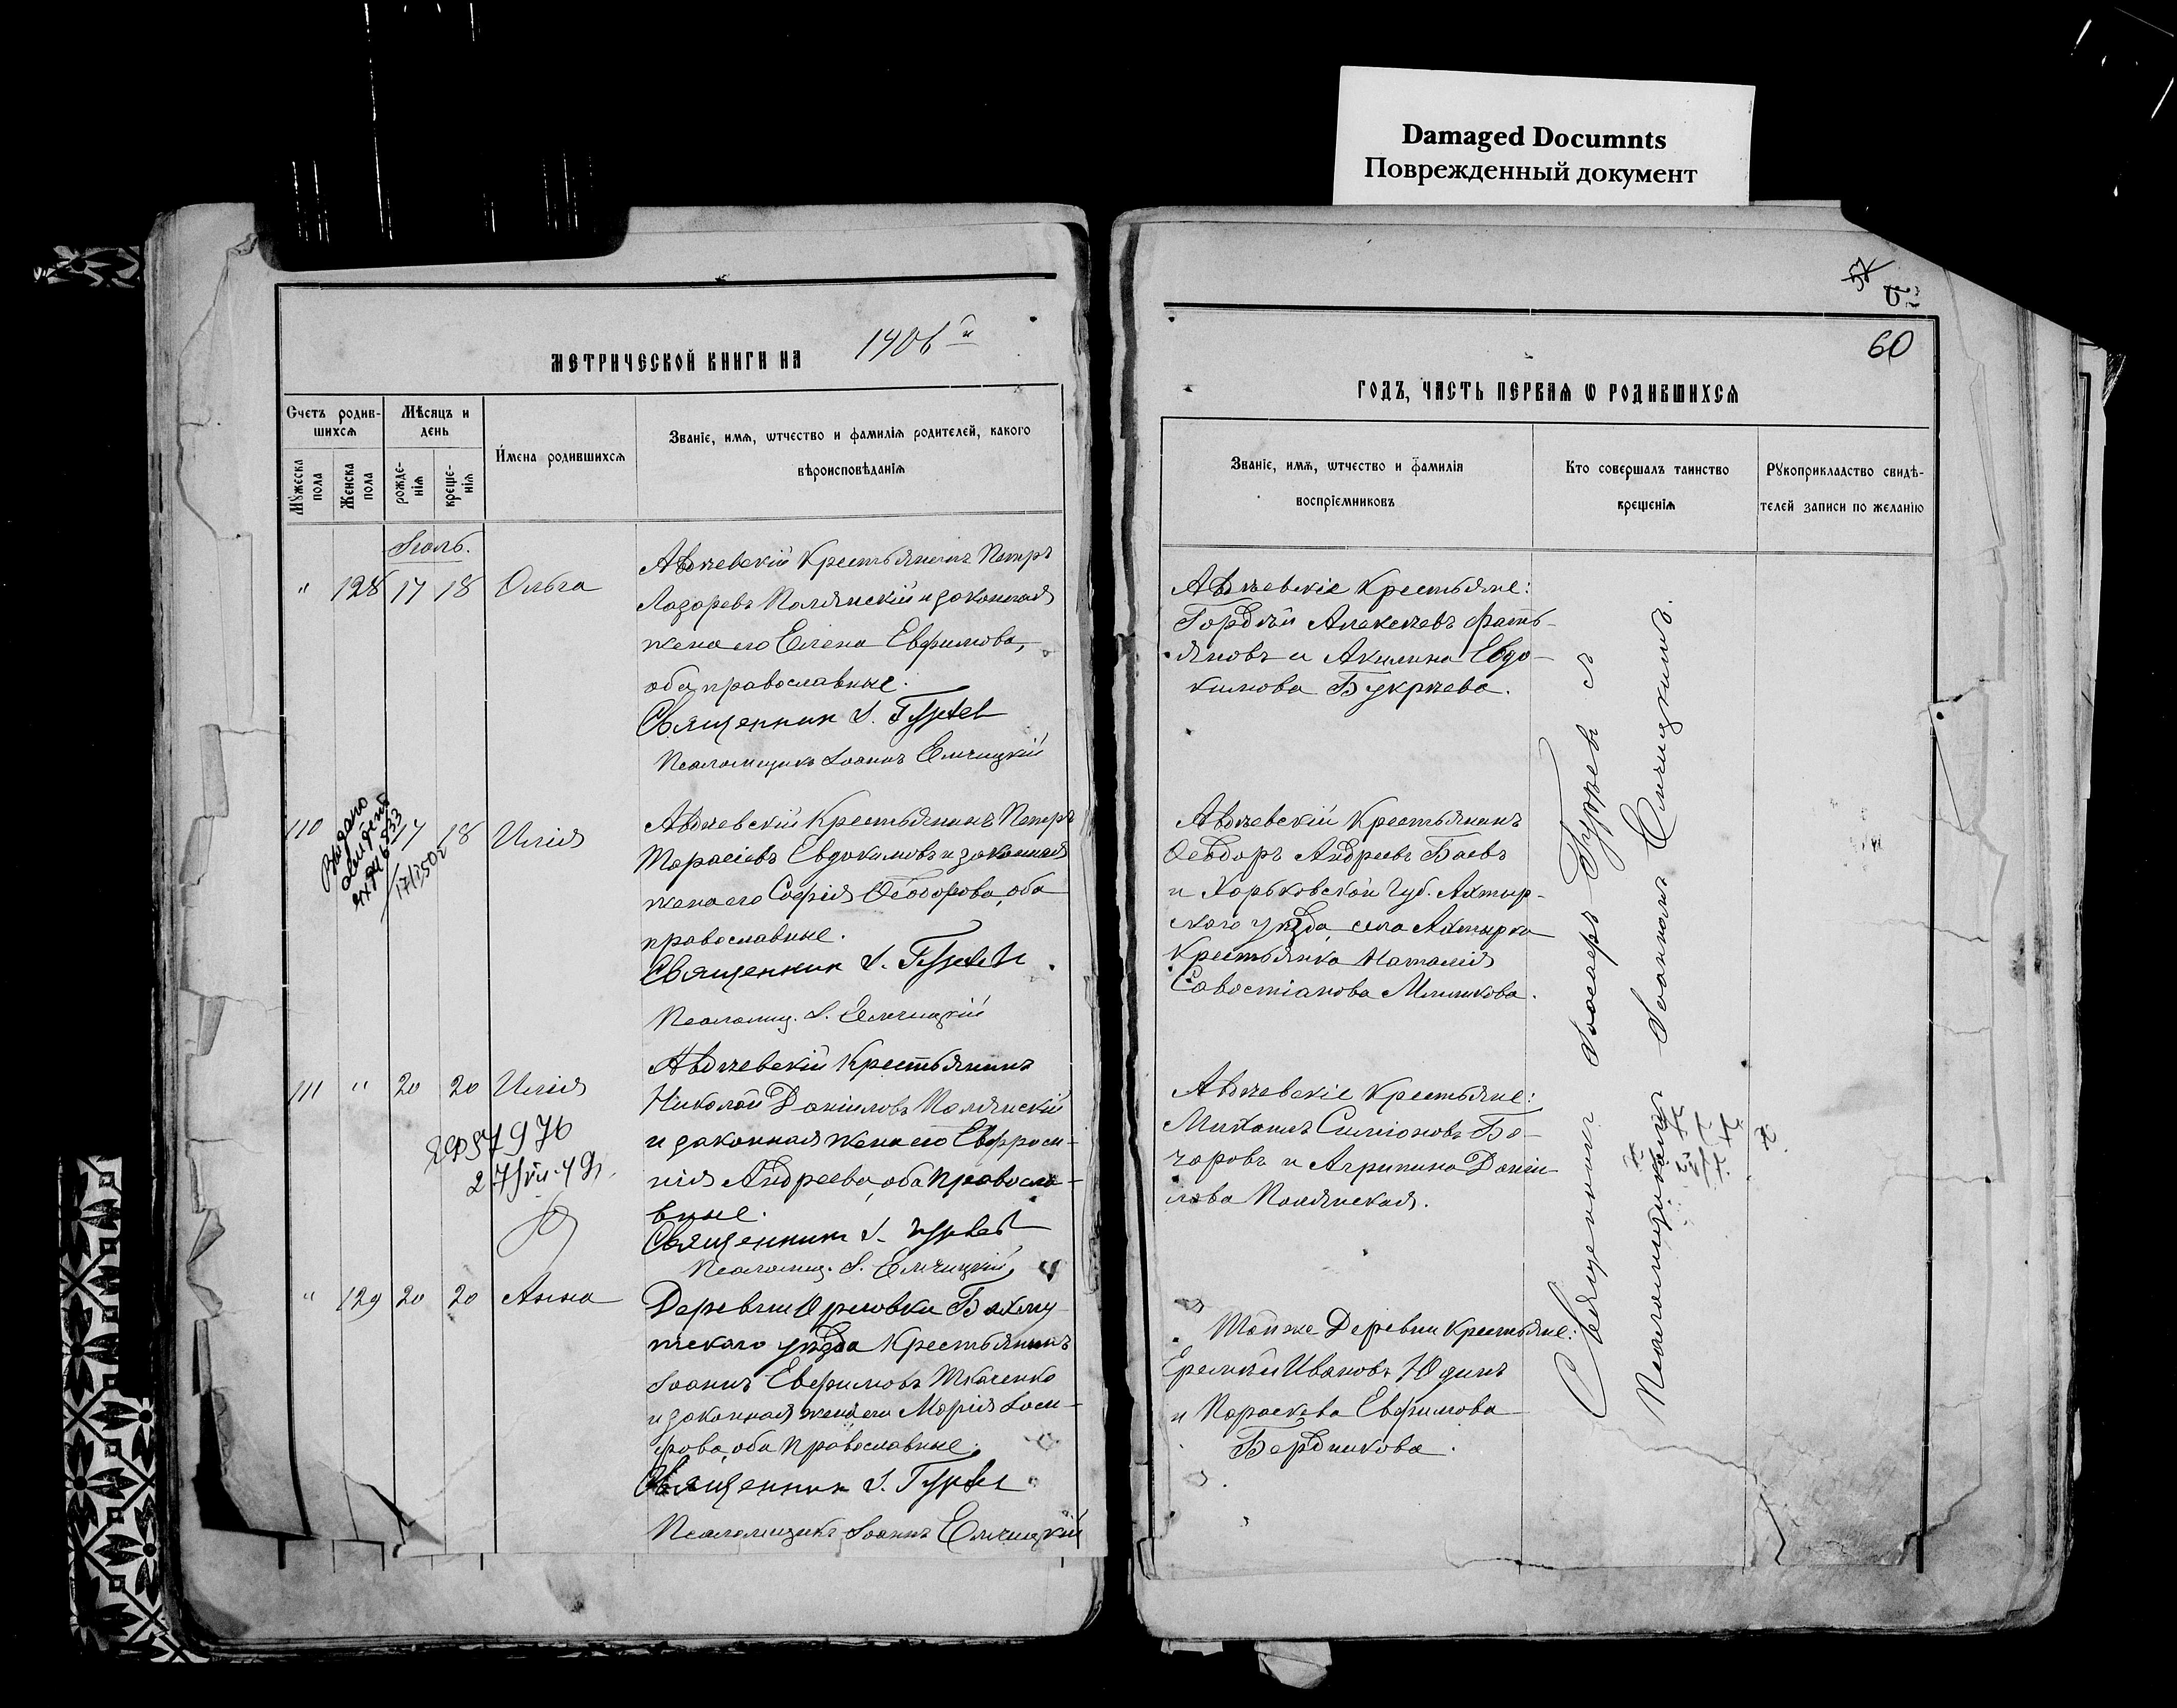 Damaged Documnts
Поврежденный документ
60
МЕТРИЧЕСКОЙ КНИГИ НА 1906й
ГОДЪ, ЧАСТЬ ПЕРВАѦ Ѡ РОДИВШИХСѦ
Счетъ родив-
шихсѧ
Мѣсяцъ и
день
Мужеска
пола
Женска
пола
рожде-
нїѧ
креще-
нїѧ
Имена родившихсѧ
Званїе, имѧ, ѡтчество и фамилїѧ родителей, какого
вѣроисповѣданїѧ
Званїе, имѧ, ѡтчество и фамилїѧ
воспрїемниковъ
Кто совершалъ таинство
крещенїѧ
Рукоприкладство свидѣ-
телей записи по желанїю
Іюль.
" 128 17 18 Ольга
Авдѣевскій Крестьянинъ Петръ
Лазаревъ Полянскій и законная
жена его Елена Евфимова,
оба православные.
Священник І. Гурьев
Псаломщикъ Іоаннъ Емчицкій
Авдѣевскіе Крестьяне:
Гордѣй Алексѣевъ Фать-
яновъ и Акилина Евдо-
кимова Букрѣева.
110 17 18 Илія
Выдано
Авдѣевскій Крестьянинъ Петръ
Тарасіевъ Евдокимовъ и законная
жена его Софія Ѳеодорова, оба
православные.
Священник І. Гурьев
Псаломщ. І. Емчицкій
Авдѣевскій Крестьянинъ
Ѳеодоръ Андреевъ Баевъ
и Харьковской Губ. Ахтыр-
ского уѣзда, села Ахтырка
Крестьянка Наталія
Савостіанова
111 " 20 20 Илія
Авдѣевскій Крестьянинъ
Николай Даніиловъ Полянскій
и законная жена его Евфроси-
нія Андреева, оба Правосла-
вные.
Священник І. Гурьев
Псаломщ. І. Емчицкій
Авдѣевскіе Крестьяне:
Михаилъ Симіоновъ Бо-
чаровъ и Агрипина Даніи-
лова Полянская.
" 129 20 20 Анна
Деревни Орловки Бахму-
тскаго уѣзда Крестьянинъ
Іоаннъ Евфимовъ Ткаченко
и законная жена его Марія Іоси-
фова, оба Православные.
Священник І. Гурьев
Псаломщикъ Іоаннъ Емчицкій
Той же Деревни Крестьяне:
Еремѣй Ивановъ Юдинъ
и Параскева Евфимова
Бердникова.
Священникъ Іосифъ Гурьевъ съ
Псаломщикомъ Іоанномъ Емчицкимъ.